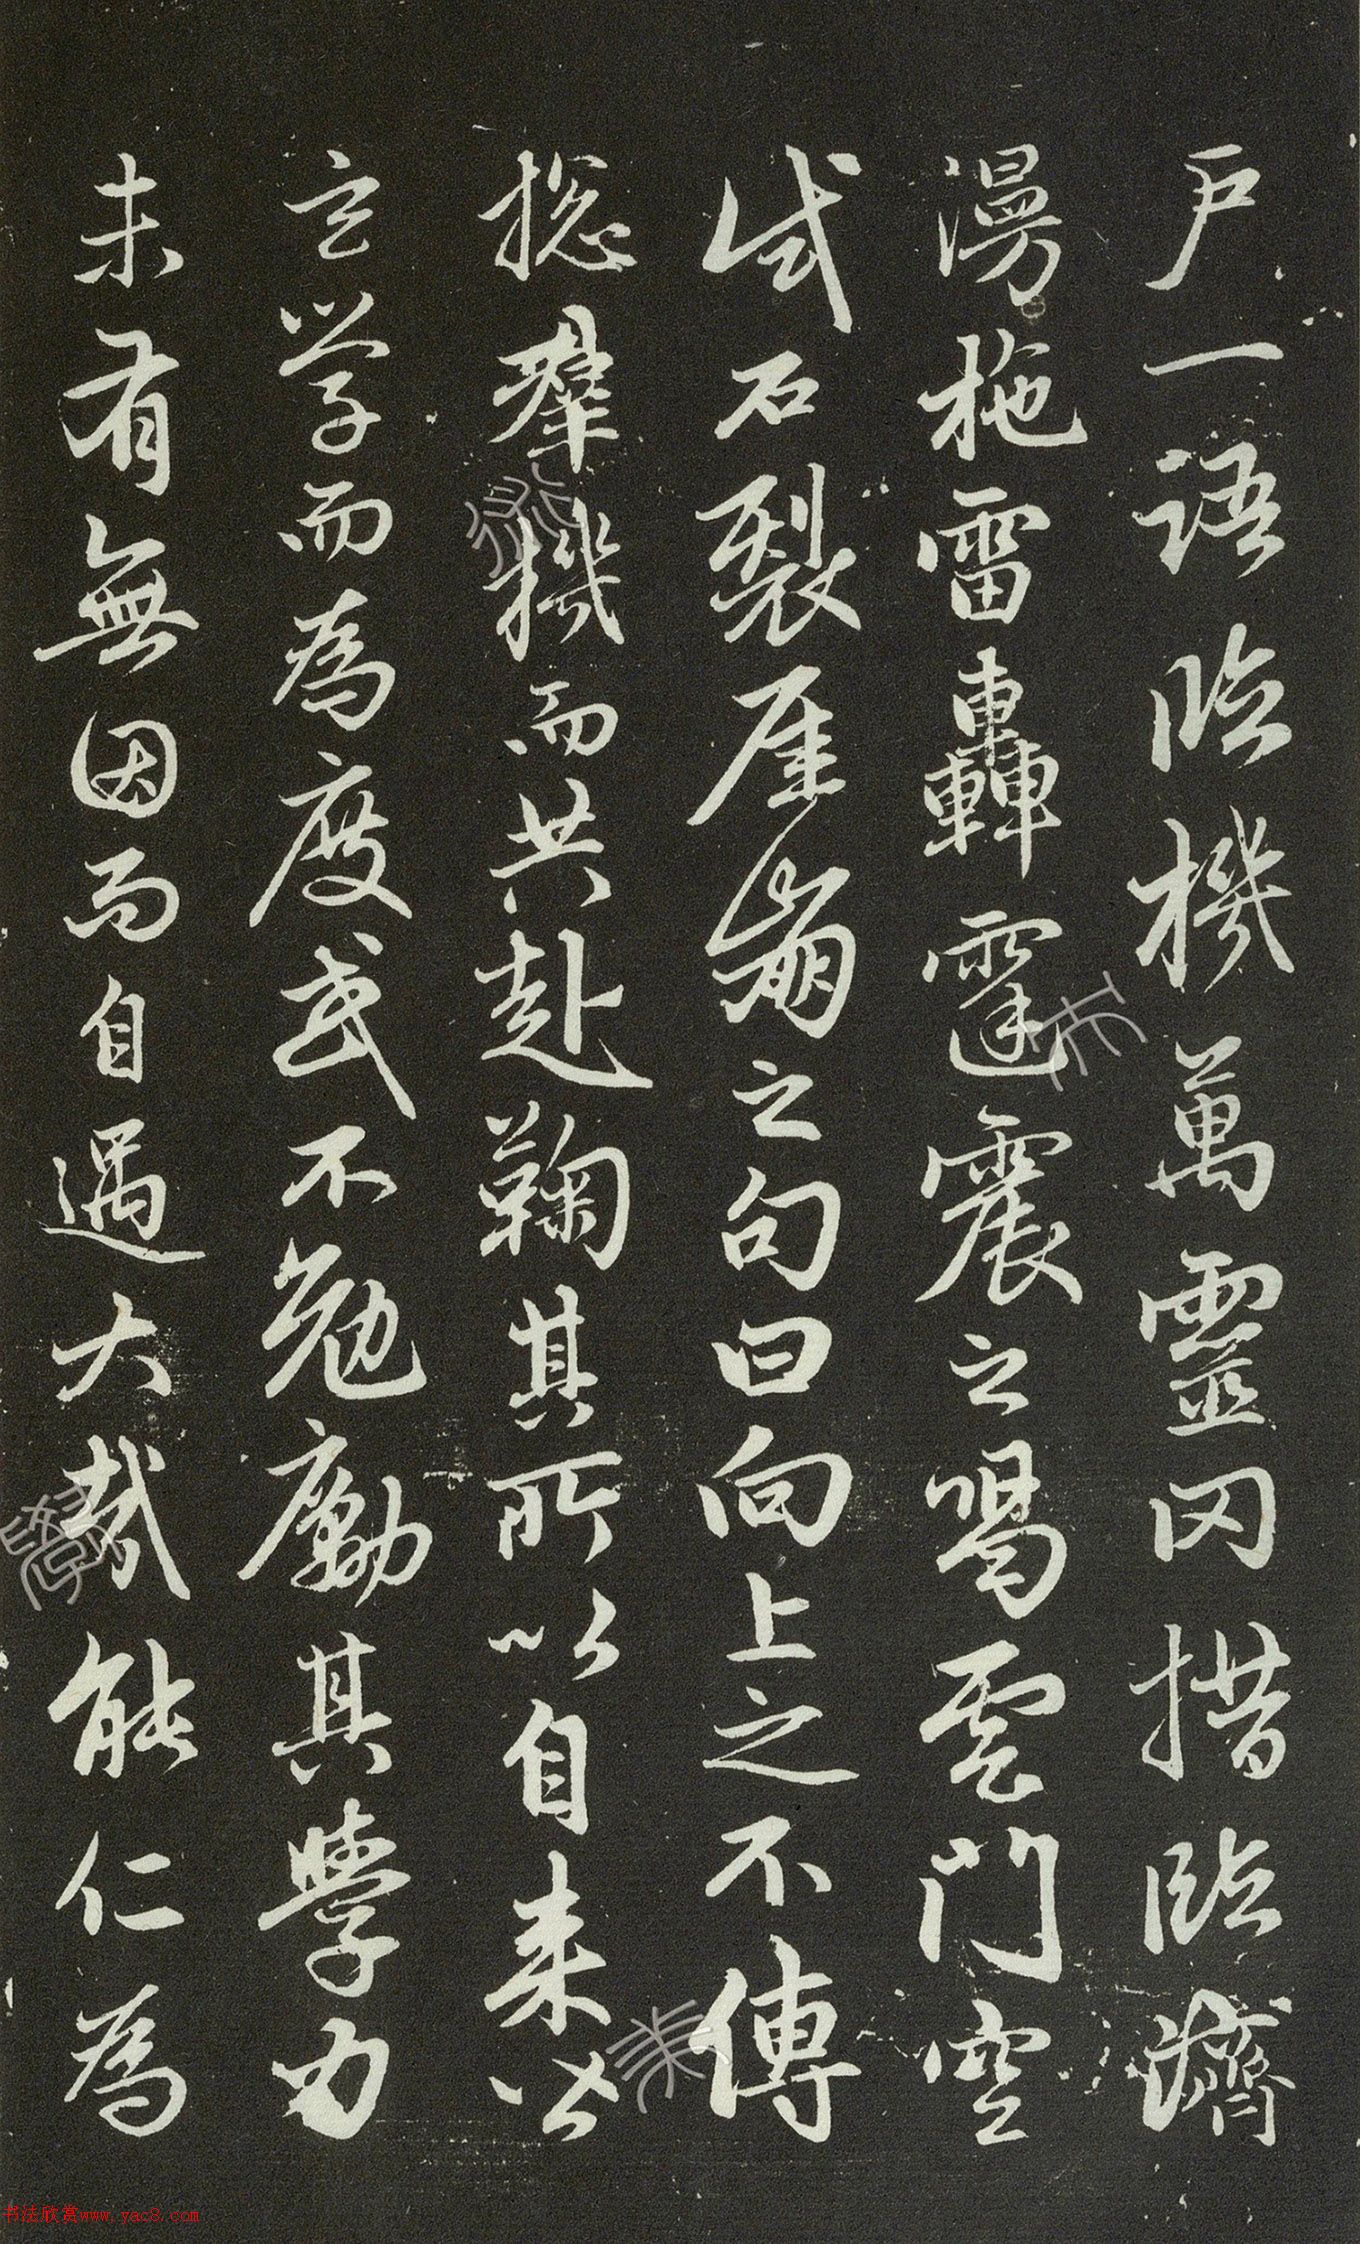 户一語臨機萬靈罔措臨濟
漫拖雷轟霆震之喝雲門空
試石裂崖崩之句曰向上之不傳
揔羣機而共赴鞠其所以自来以
立学而為度或不勉勵其學力
未有無因而自遇大哉能仁為
书法欣赏www.yac8.com